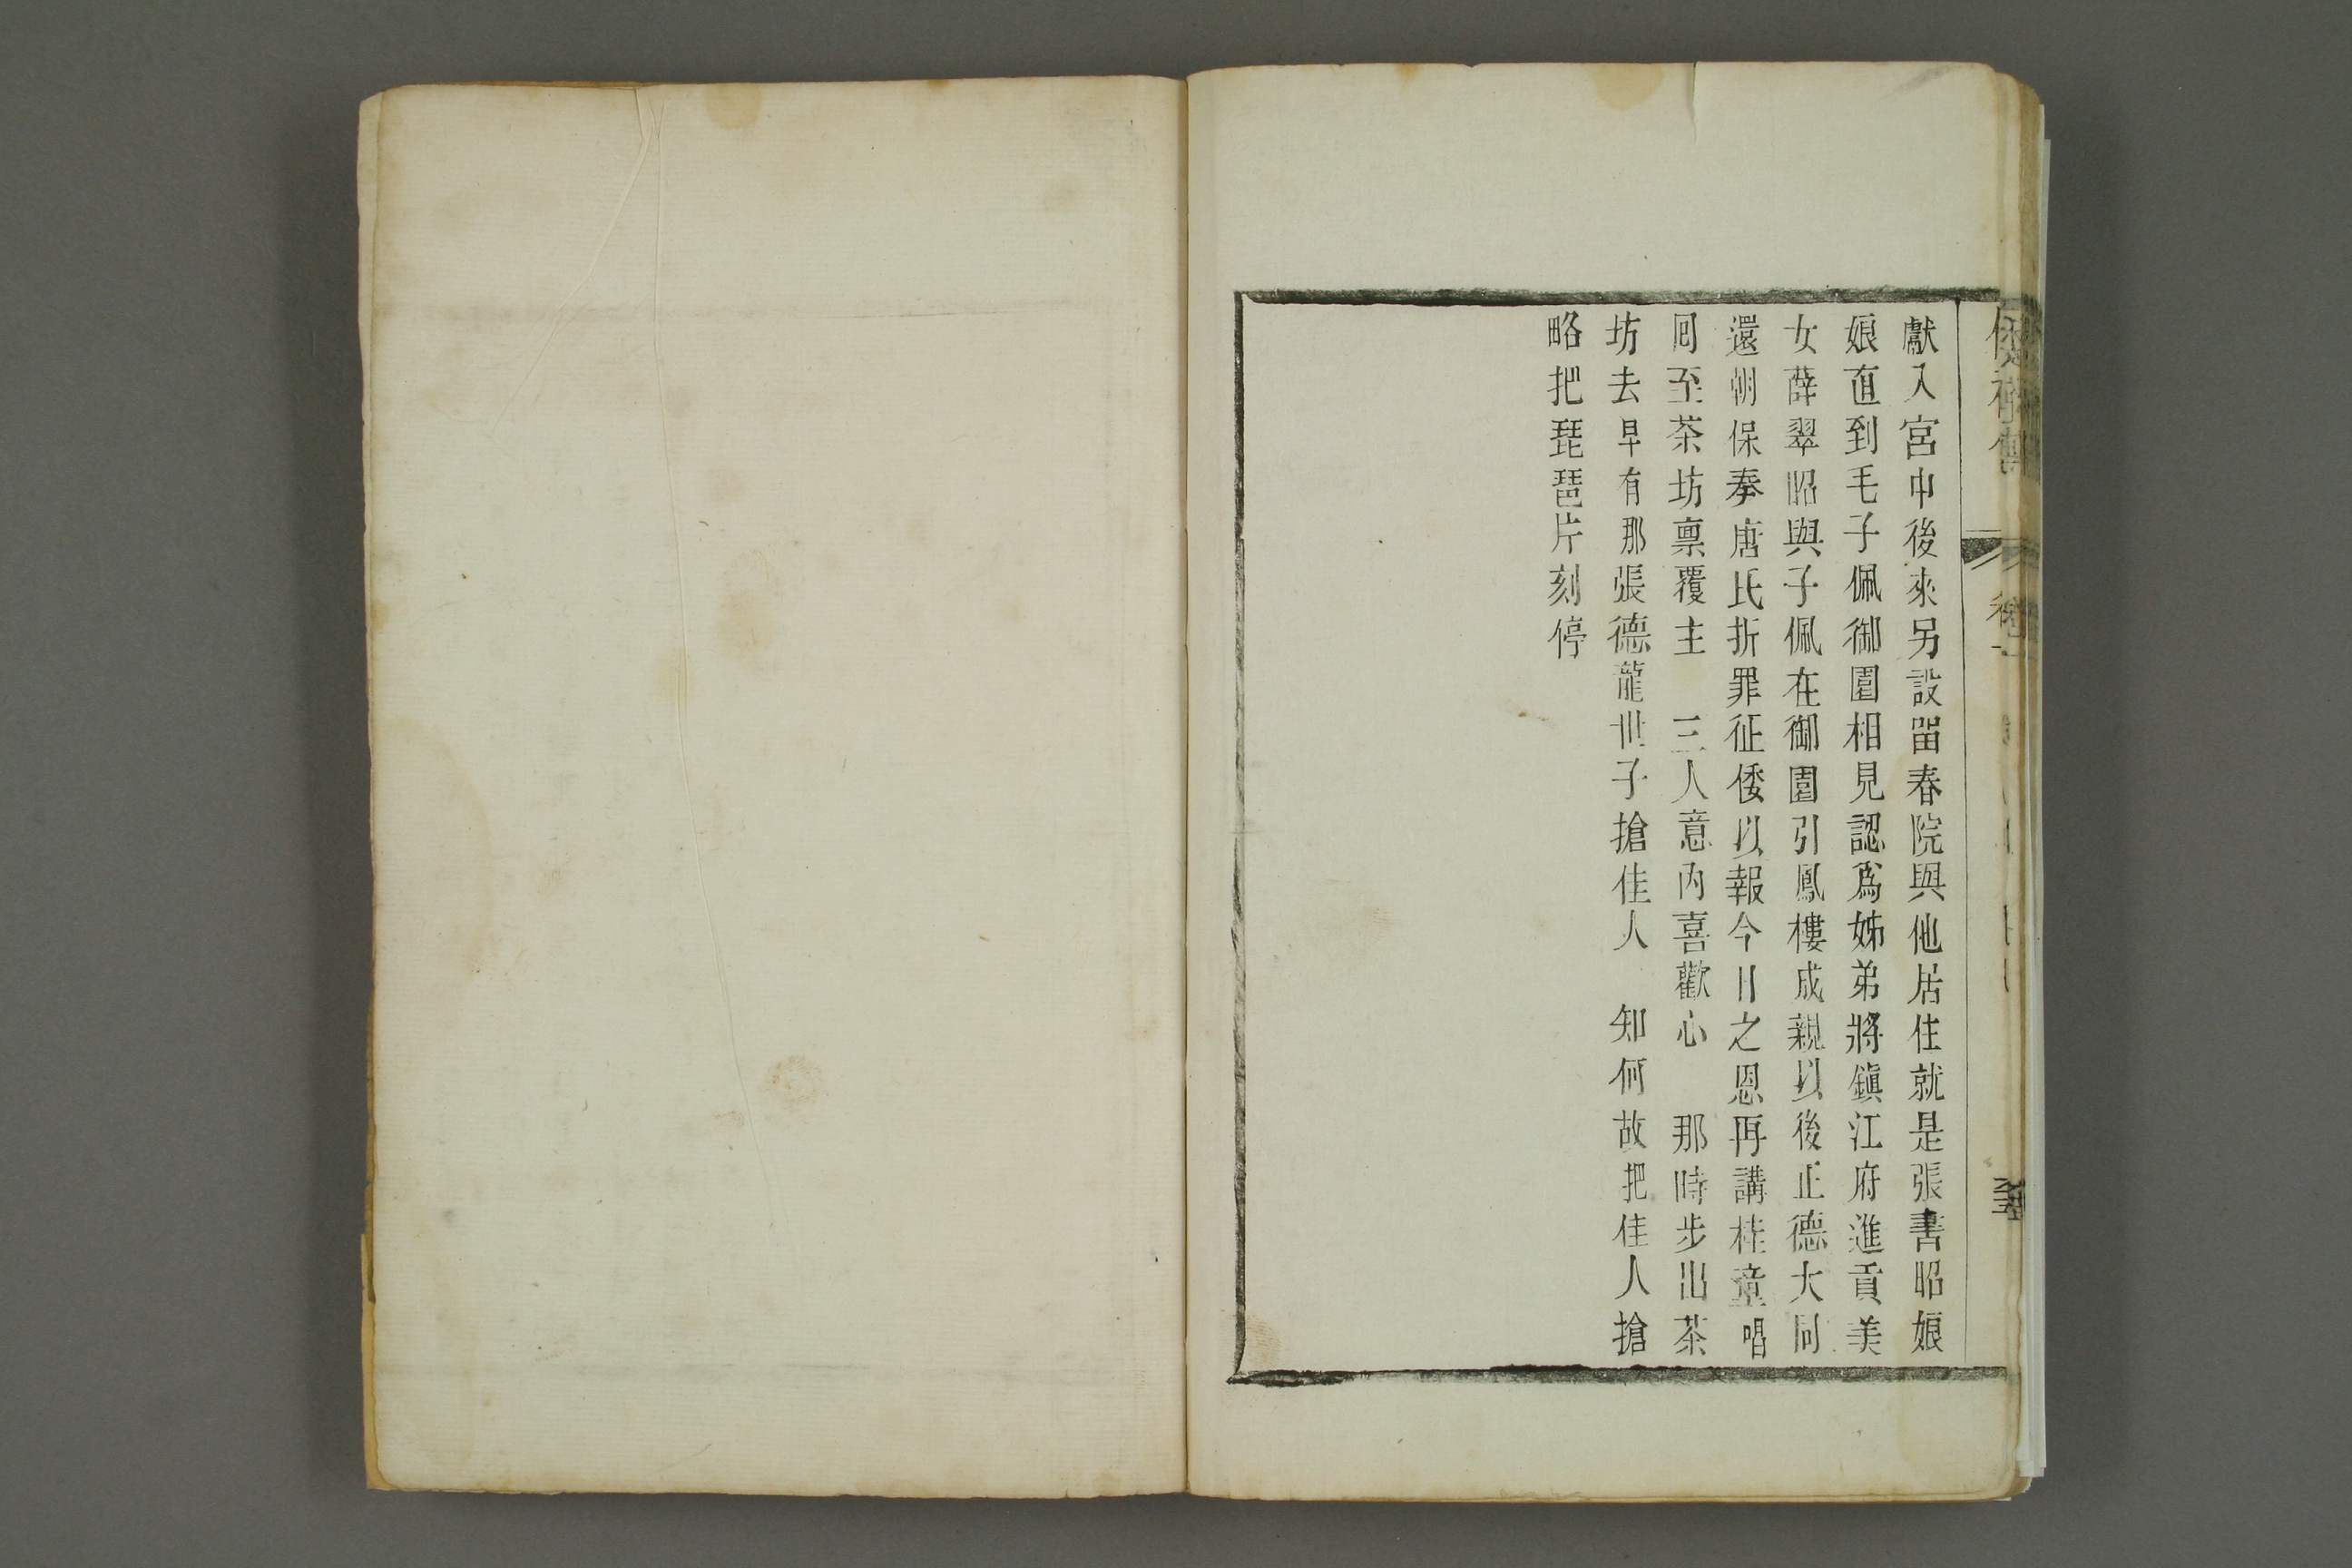 獻入宮中後來另設畱春院與他居住就是張書昭娘
娘直到毛子佩御園相見認爲姊弟將鎭江府進貢美
女薛翠昭與子佩在御園引鳳樓成親以後正德大同
還朝保奏唐氏折罪征倭以報今日之恩再講桂童唱
囘至茶坊禀覆主　三人意內喜歡心　那時步出茶
坊去早有那張德龍世子搶佳人　知何故把佳人搶
略把琵琶片刻停